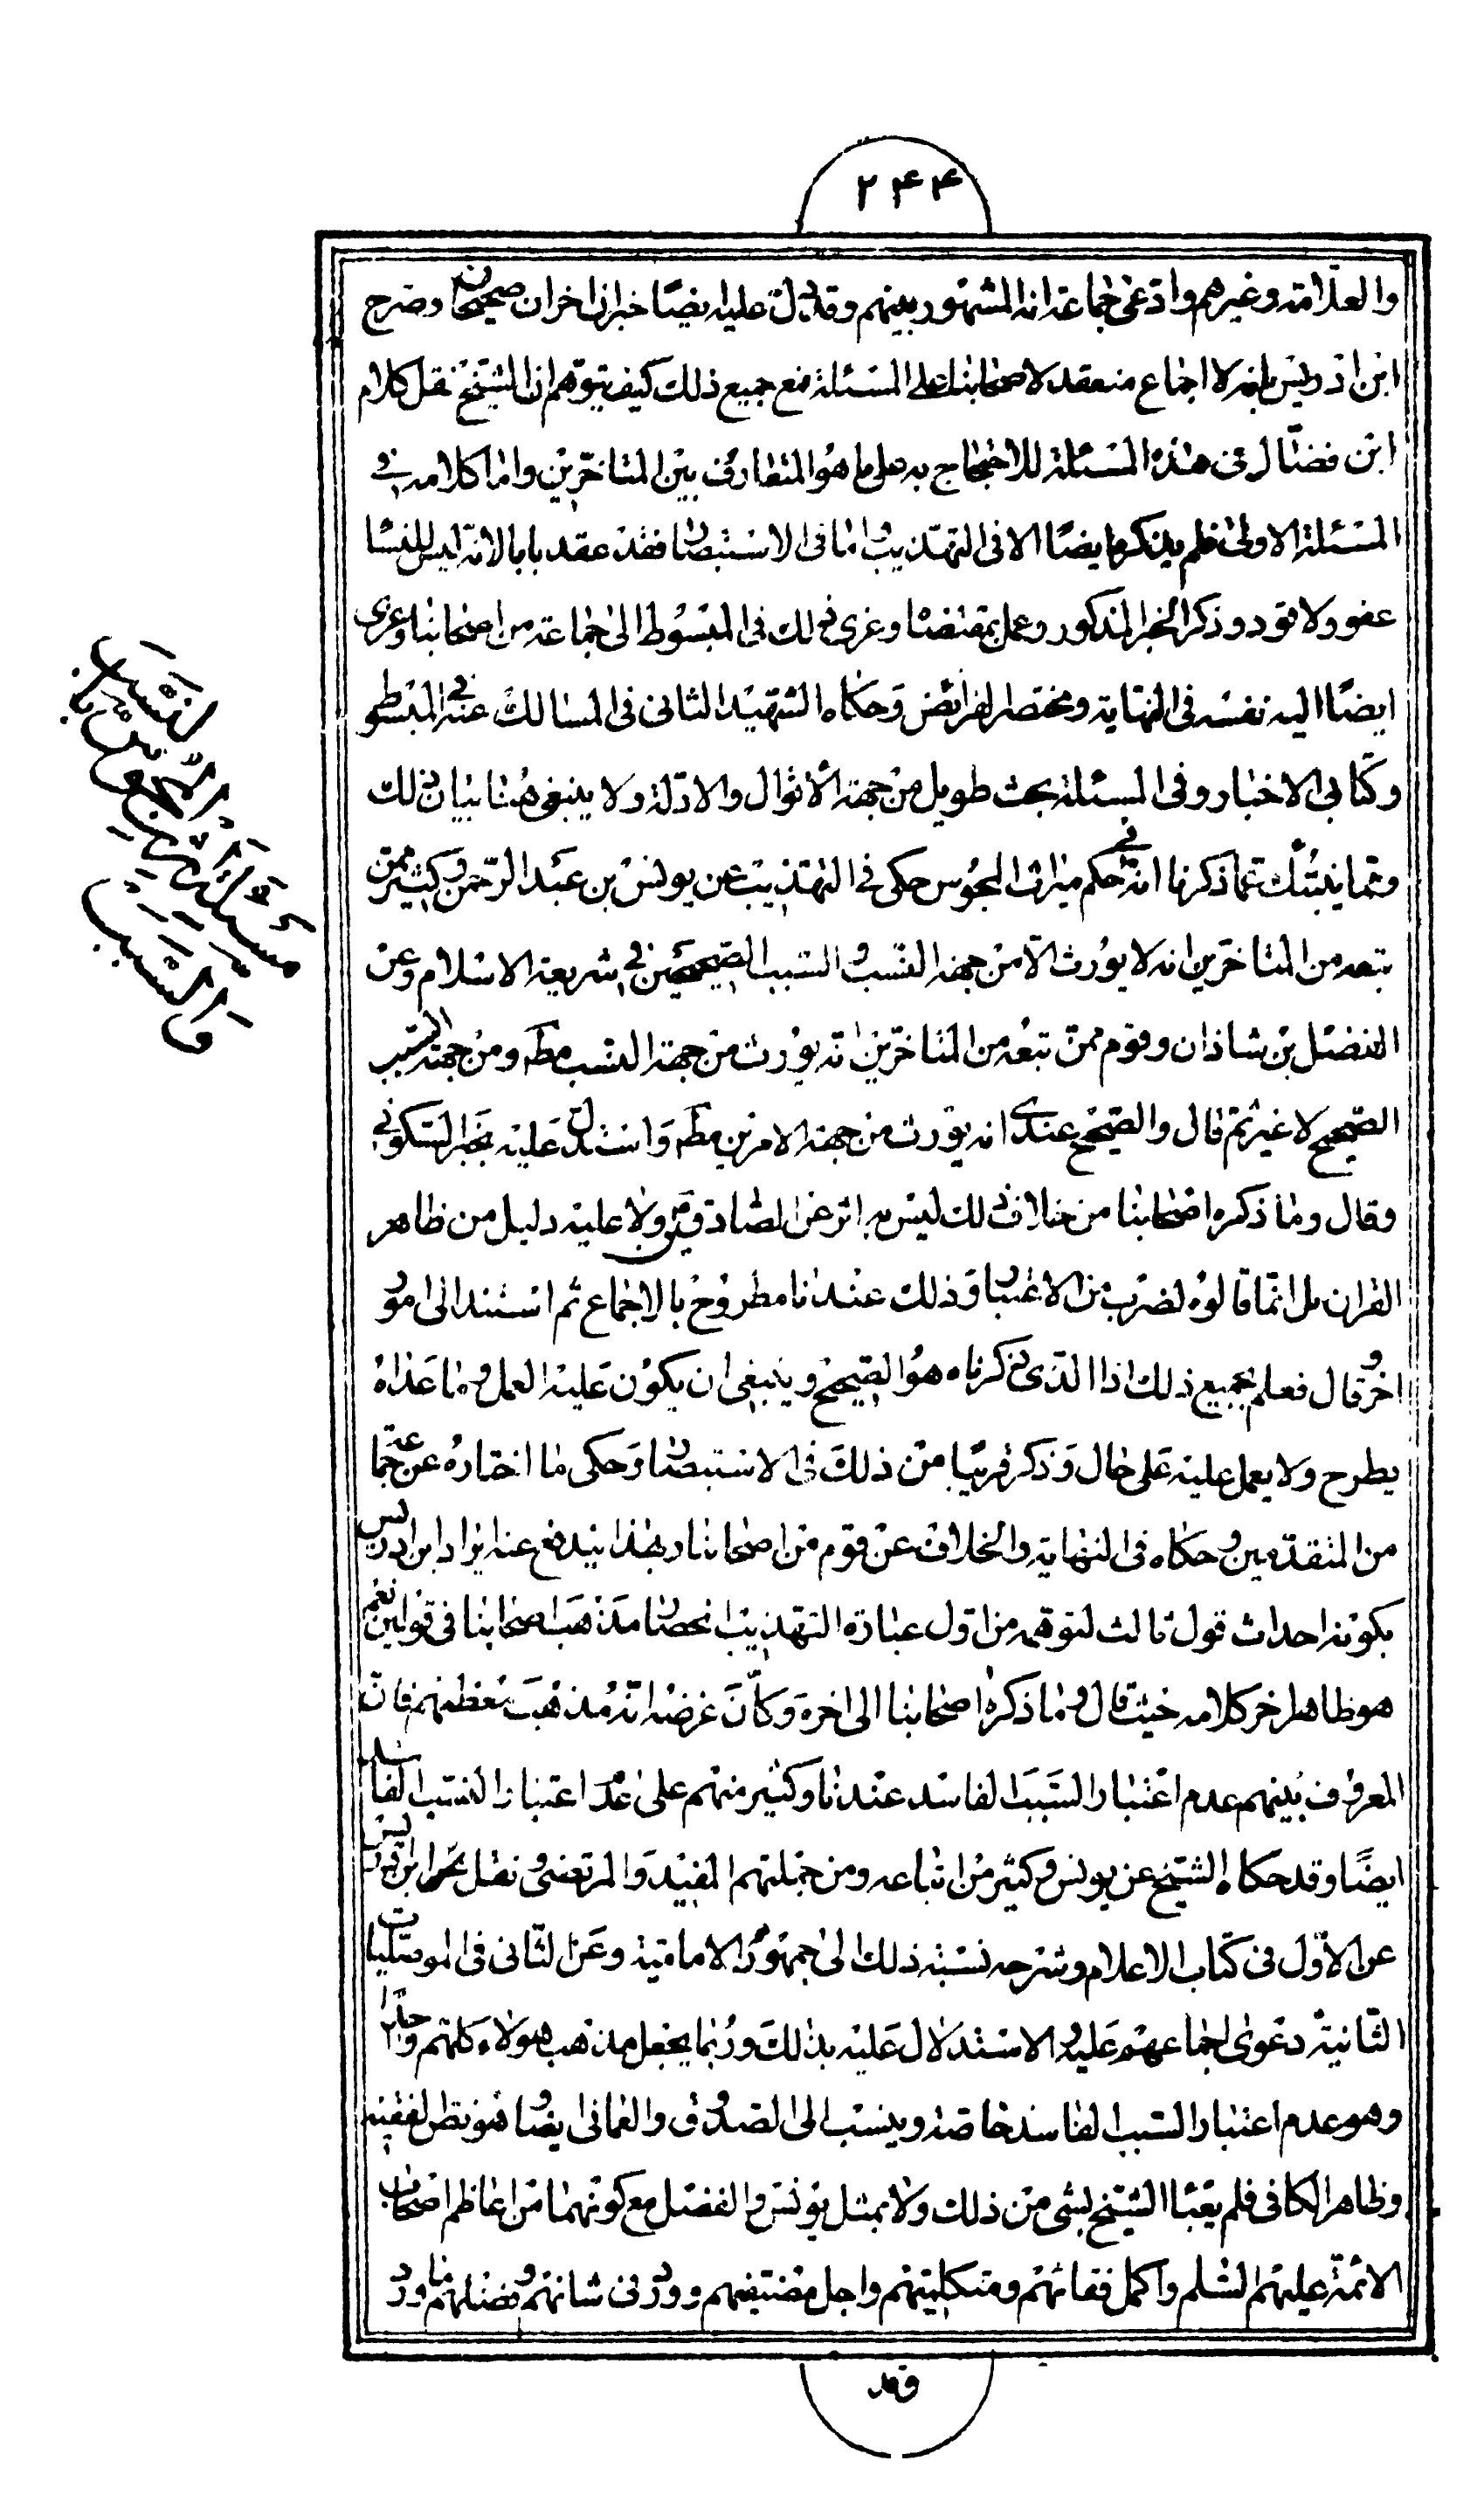 ۲۴۴
والعلامة وغيرهم وادعى جماعة انه المشهور بينهم وقد دل عليه ايضا خبران اخران صحيحان وصرح
ابن ادريس بانه لا اجماع منعقد لاصحابنا على المسئلة فمع جميع ذلك كيف يتوهم ان الشيخ نقل كلام
ابن فضال في هذه المسئلة للاحتجاج به على ما هو المتعارف بين المتاخرين واما كلامه في
المسئلة الاولى فلم يذكرها ايضا الا في التهذيب واما في الاستبصار فقد عقد بابا لانه ليس للنسا
عفو ولا قود وذكر الخبر المذكور وعمل بمقتضاه وعزى ذلك في المبسوط الى جماعة من اصحابنا وعزى
ايضا اليه نفسه في النهاية ومختصر الفرائض وحكاه الشهيد الثاني في المسالك عنه في المبسوط و
وكتابي الاخبار وفي المسئلة بحث طويل من جهة الاقوال والادلة ولا ينبغي هنا بيان ذلك
ومما ينبئك عما ذكرنا انه في حكم ميراث المجوس حكى في التهذيب عن يونس بن عبد الرحمن وكثير ممن
تبعه من المتاخرين انه لا يورث الا من جهة النسب والسبب الصحيحين في شريعة الاسلام وعن
الفضل بن شاذان وقوم ممن تبعه من المتاخرين انه يورث من جهة النسب مطه ومن جهة السبب
الصحيح لا غير ثم قال والصحيح عندي انه يورث من جهة الامرين مطه واستدل عليه بخبر السكوني
وقال وما ذكره اصحابنا من خلاف ذلك ليس به اثر عن الصادقين ولا عليه دليل من ظاهر
القران بل انما قالوه لضرب من الاعتبار وذلك عندنا مطروح بالاجماع ثم استند الى امور
اخر وقال فعلم بجميع ذلك اذا الذي ذكرناه هو الصحيح وينبغي ان يكون عليه العمل وما عداه
يطرح ولا يعمل عليه على حال وذكر قريبا من ذلك في الاستبصار وحكى ما اختاره عن جماعة
من المتقدمين وحكاه في النهاية والخلاف عن قوم من اصحابنا وبهذا يندفع عنه ايراد ابن ادريس
بكونه احداث قول ثالث لتوهمه من اول عبارة التهذيب انحصار مذهب اصحابنا في قولين نعم
هو ظاهر اخر كلامه حيث قال وما ذكره اصحابنا الى اخره وكان غرضه انه مذهب معظمهم فان
المعروف بينهم عدم اعتبار السبب الفاسد عندنا وكثير منهم على عدم اعتبار النسب الفاسد
ايضا وقد حكاه الشيخ عن يونس وكثير من اتباعه ومن جملتهم المفيد والمرتضى ونقل ابن ادريس
عن الاول في كتاب الاعلام وشرحه نسبة ذلك الى جمهور الامامية وعن الثاني في الموصليات
الثانية دعوى اجماعهم عليه والاستدلال عليه بذلك وربما يجعل مذهب هؤلاء كلهم واحدا
وهو عدم اعتبار السبب الفاسد خاصة وينسب الى الصدوق والعماني ايضا فهو نص الفقيه
وظاهر الكافي فلم يعبا الشيخ بشي من ذلك ولا بمثل يونس والفضل مع كونهما من اعاظم اصحاب
الائمة عليهم السلم واكمل فقهائهم ومتكلميهم واجل مصنفيهم وورد في شانهم وفضلهم ما ورد
وقد